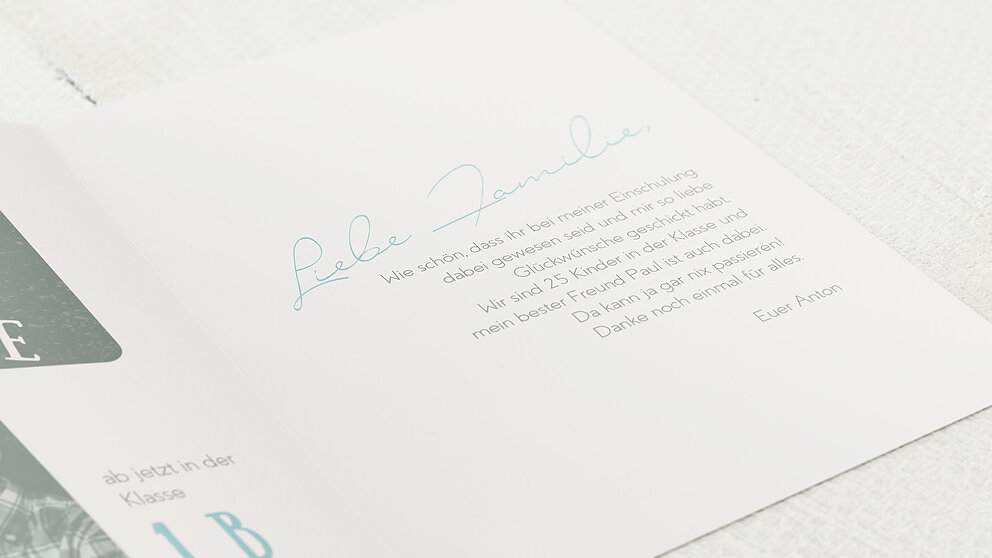 Liebe Familie,
Wie schön, dass ihr bei meiner Einschulung
dabei gewesen seid und mir so liebe
Glückwünsche geschickt habt.
Wir sind 25 Kinder in der Klasse und
mein bester Freund Paul ist auch dabei.
Da kann ja gar nix passieren!
Danke noch einmal für alles.
Euer Anton
E
ab jetzt in der
Klasse
1 B